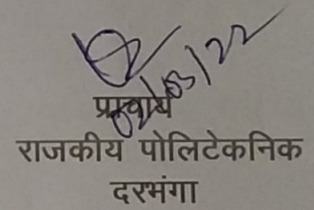 02/03/22
प्राचार्य
राजकीय पोलिटेकनिक
दरभंगा